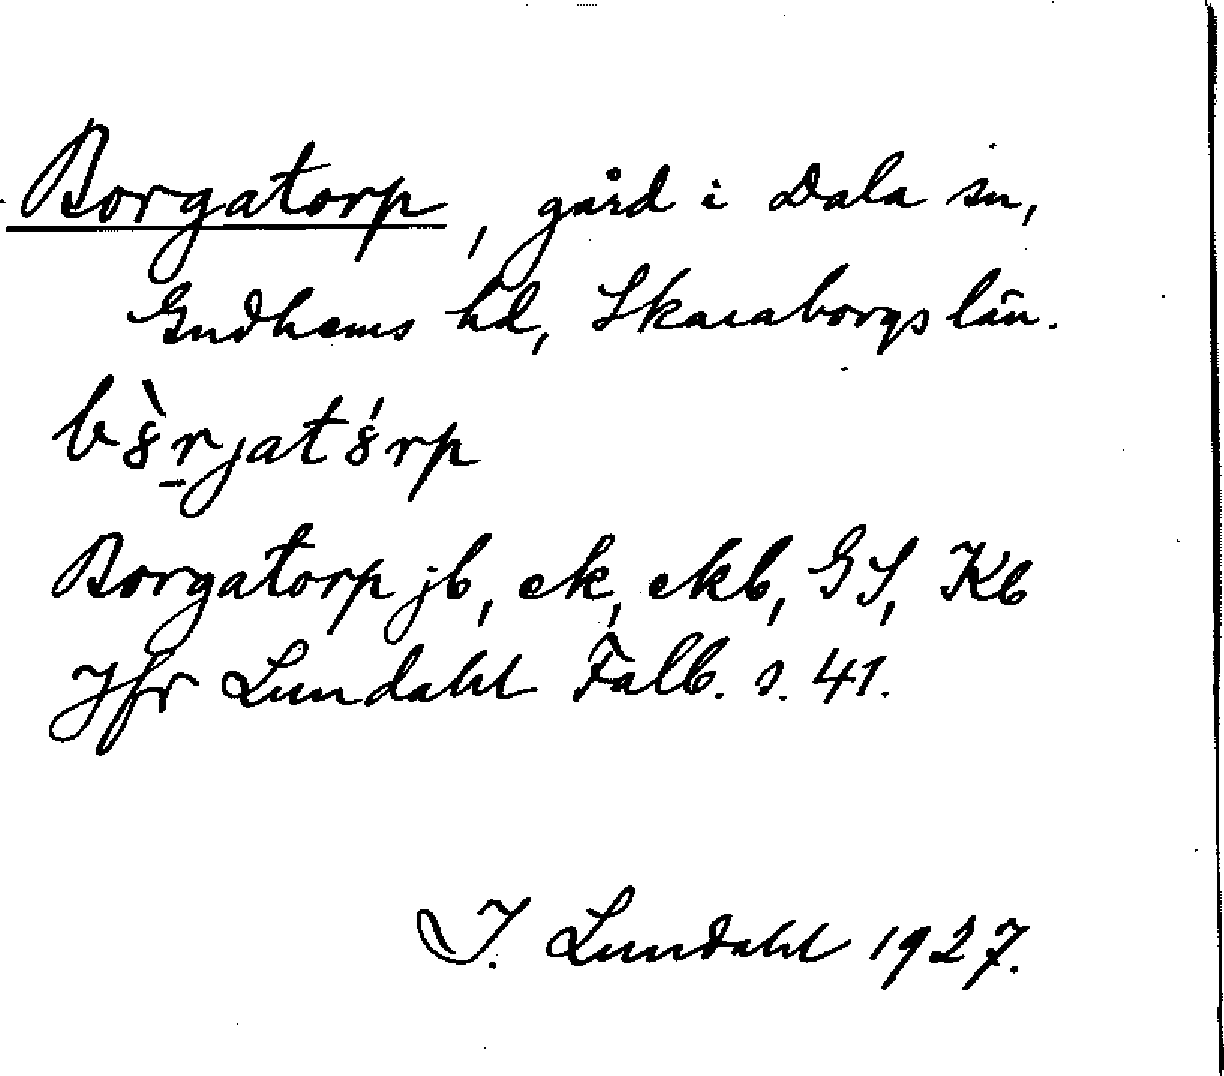 Borgatorp, gård i Dala sn,
Gudhems hd, Skaraborgs län.
Borgatorp jb, ek, ekb, GS, Kb
Jfr Lundahl Falb. s. 41.
I. Lundahl 1927.